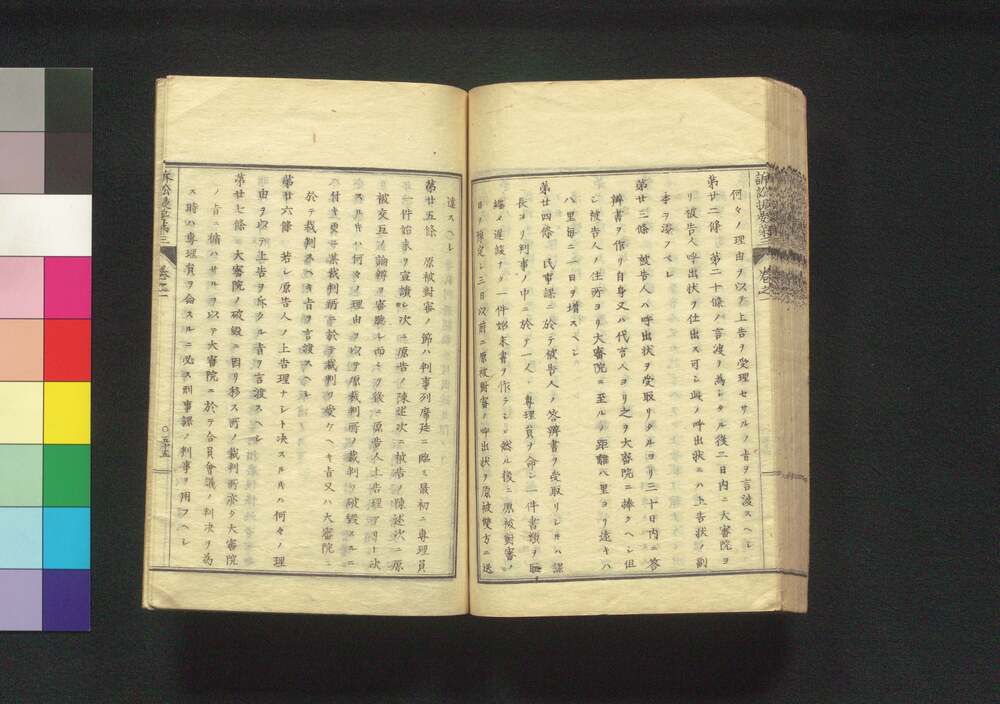 何々ノ理由ヲ以テ上告ヲ受理セサルノ旨ヲ言渡スヘシ
第廿二條 第二十條ノ言渡ヲ為シタル後二日内ニ大審院ヨ
リ被告人呼出状ヲ仕出ス可シ此ノ呼出状ニハ上告状ノ副
本ヲ添フベシ
第廿三條 被告人ハ呼出状ヲ受取リタルヨリ三十日内ニ答
辨書ヲ作リ自身又ハ代言人ヨリ之ヲ大審院ニ捧クヘシ但
シ被告人ノ住所ヨリ大審院ニ至ルノ距離八里ヨリ遠キハ
八里毎ニ一日ヲ増スベシ
第廿四條 民事課ニ於テ被告人ノ答辨書ヲ受取リシトキハ課
長ヨリ判事ノ中ニ於テ一人ノ専理員ヲ命シ一件書類ヲ
遅緩ナク一件始末書ヲ作ラシメ然ル後ニ原被對審ノ
日ヲ預定シ三日以前ニ原被對審ノ呼出状ヲ原被雙方ニ送
達スヘシ
第廿五條 原被對審ノ節ハ判事列席廷ニ臨ミ最初ニ専理員
一件始末ヲ宣讀シ次ニ原告ノ陳述次ニ被告ノ陳述次ニ原
被交互ノ論辨ヲ審聽シ而シテ後ニ原告人上告理アリト決
スルトキハ何々ノ理由ヲ以テ原裁判所ノ裁判ヲ破毀スルニ
付キ更ニ某裁判所ニ於テ裁判ヲ受クヘキ旨又ハ大審院ニ
於テ裁判スヘキ旨ヲ言渡スヘシ
第廿六條 若シ原告人ノ上告理ナシト决スルトキハ何々ノ理
由ヲ以テ上告ヲ斥クル旨ヲ言渡スヘシ
第廿七條 大審院ノ破毀ニ因リ移ス所ノ裁判所亦タ大審院
ノ旨ニ循ハサルヲ以テ大審院ニ於テ合員會議ノ判决ヲ為
ス時ハ専理員ヲ命スルニ必ス刑事課ノ判事ヲ用フヘシ
卷之一
五十五